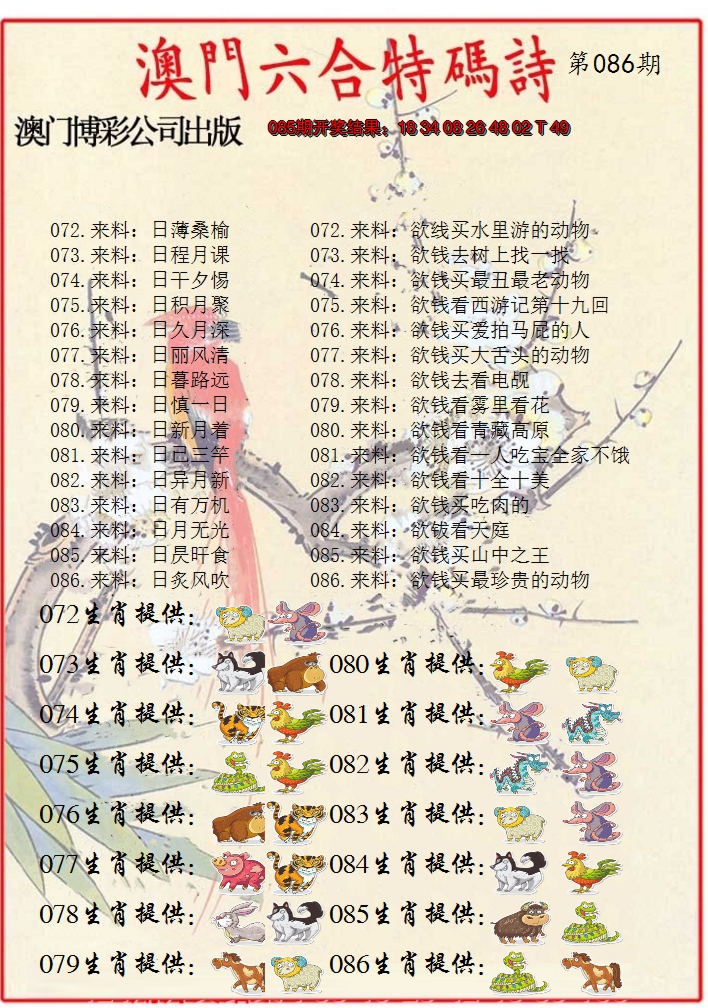 澳門六合特碼詩 第086期
澳门博彩公司出版 085期开奖结果：18 34 08 26 48 02 T 49
072.来料：日薄桑榆 072.来料：欲线买水里游的动物
073.来料：日程月课 073.来料：欲钱去树上找一找
074.来料：日干夕惕 074.来料：欲钱买最丑最老动物
075.来料：日积月聚 075.来料：欲钱看西游记第十九回
076.来料：日久月深 076.来料：欲钱买爱拍马屁的人
077.来料：日丽风清 077.来料：欲钱买大舌头的动物
078.来料：日暮路远 078.来料：欲钱去看电觇
079.来料：日慎一日 079.来料：欲钱看雾里看花
080.来料：日新月着 080.来料：欲钱看青藏高原
081.来料：日已三竿 081.来料：欲钱看一人吃宝全家不饿
082.来料：日异月新 082.来料：欲钱看十全十美
083.来料：日有万机 083.来料：欲钱买吃肉的
084.来料：日月无光 084.来料：欲钹看天庭
085.来料：日昃旰食 085.来料：欲钱买山中之王
086.来料：日炙风吹 086.来料：欲钱买最珍贵的动物
072生肖提供：
073生肖提供： 080生肖提供：
074生肖提供： 081生肖提供：
075生肖提供： 082生肖提供：
076生肖提供： 083生肖提供：
077生肖提供： 084生肖提供：
078生肖提供： 085生肖提供：
079生肖提供： 086生肖提供：